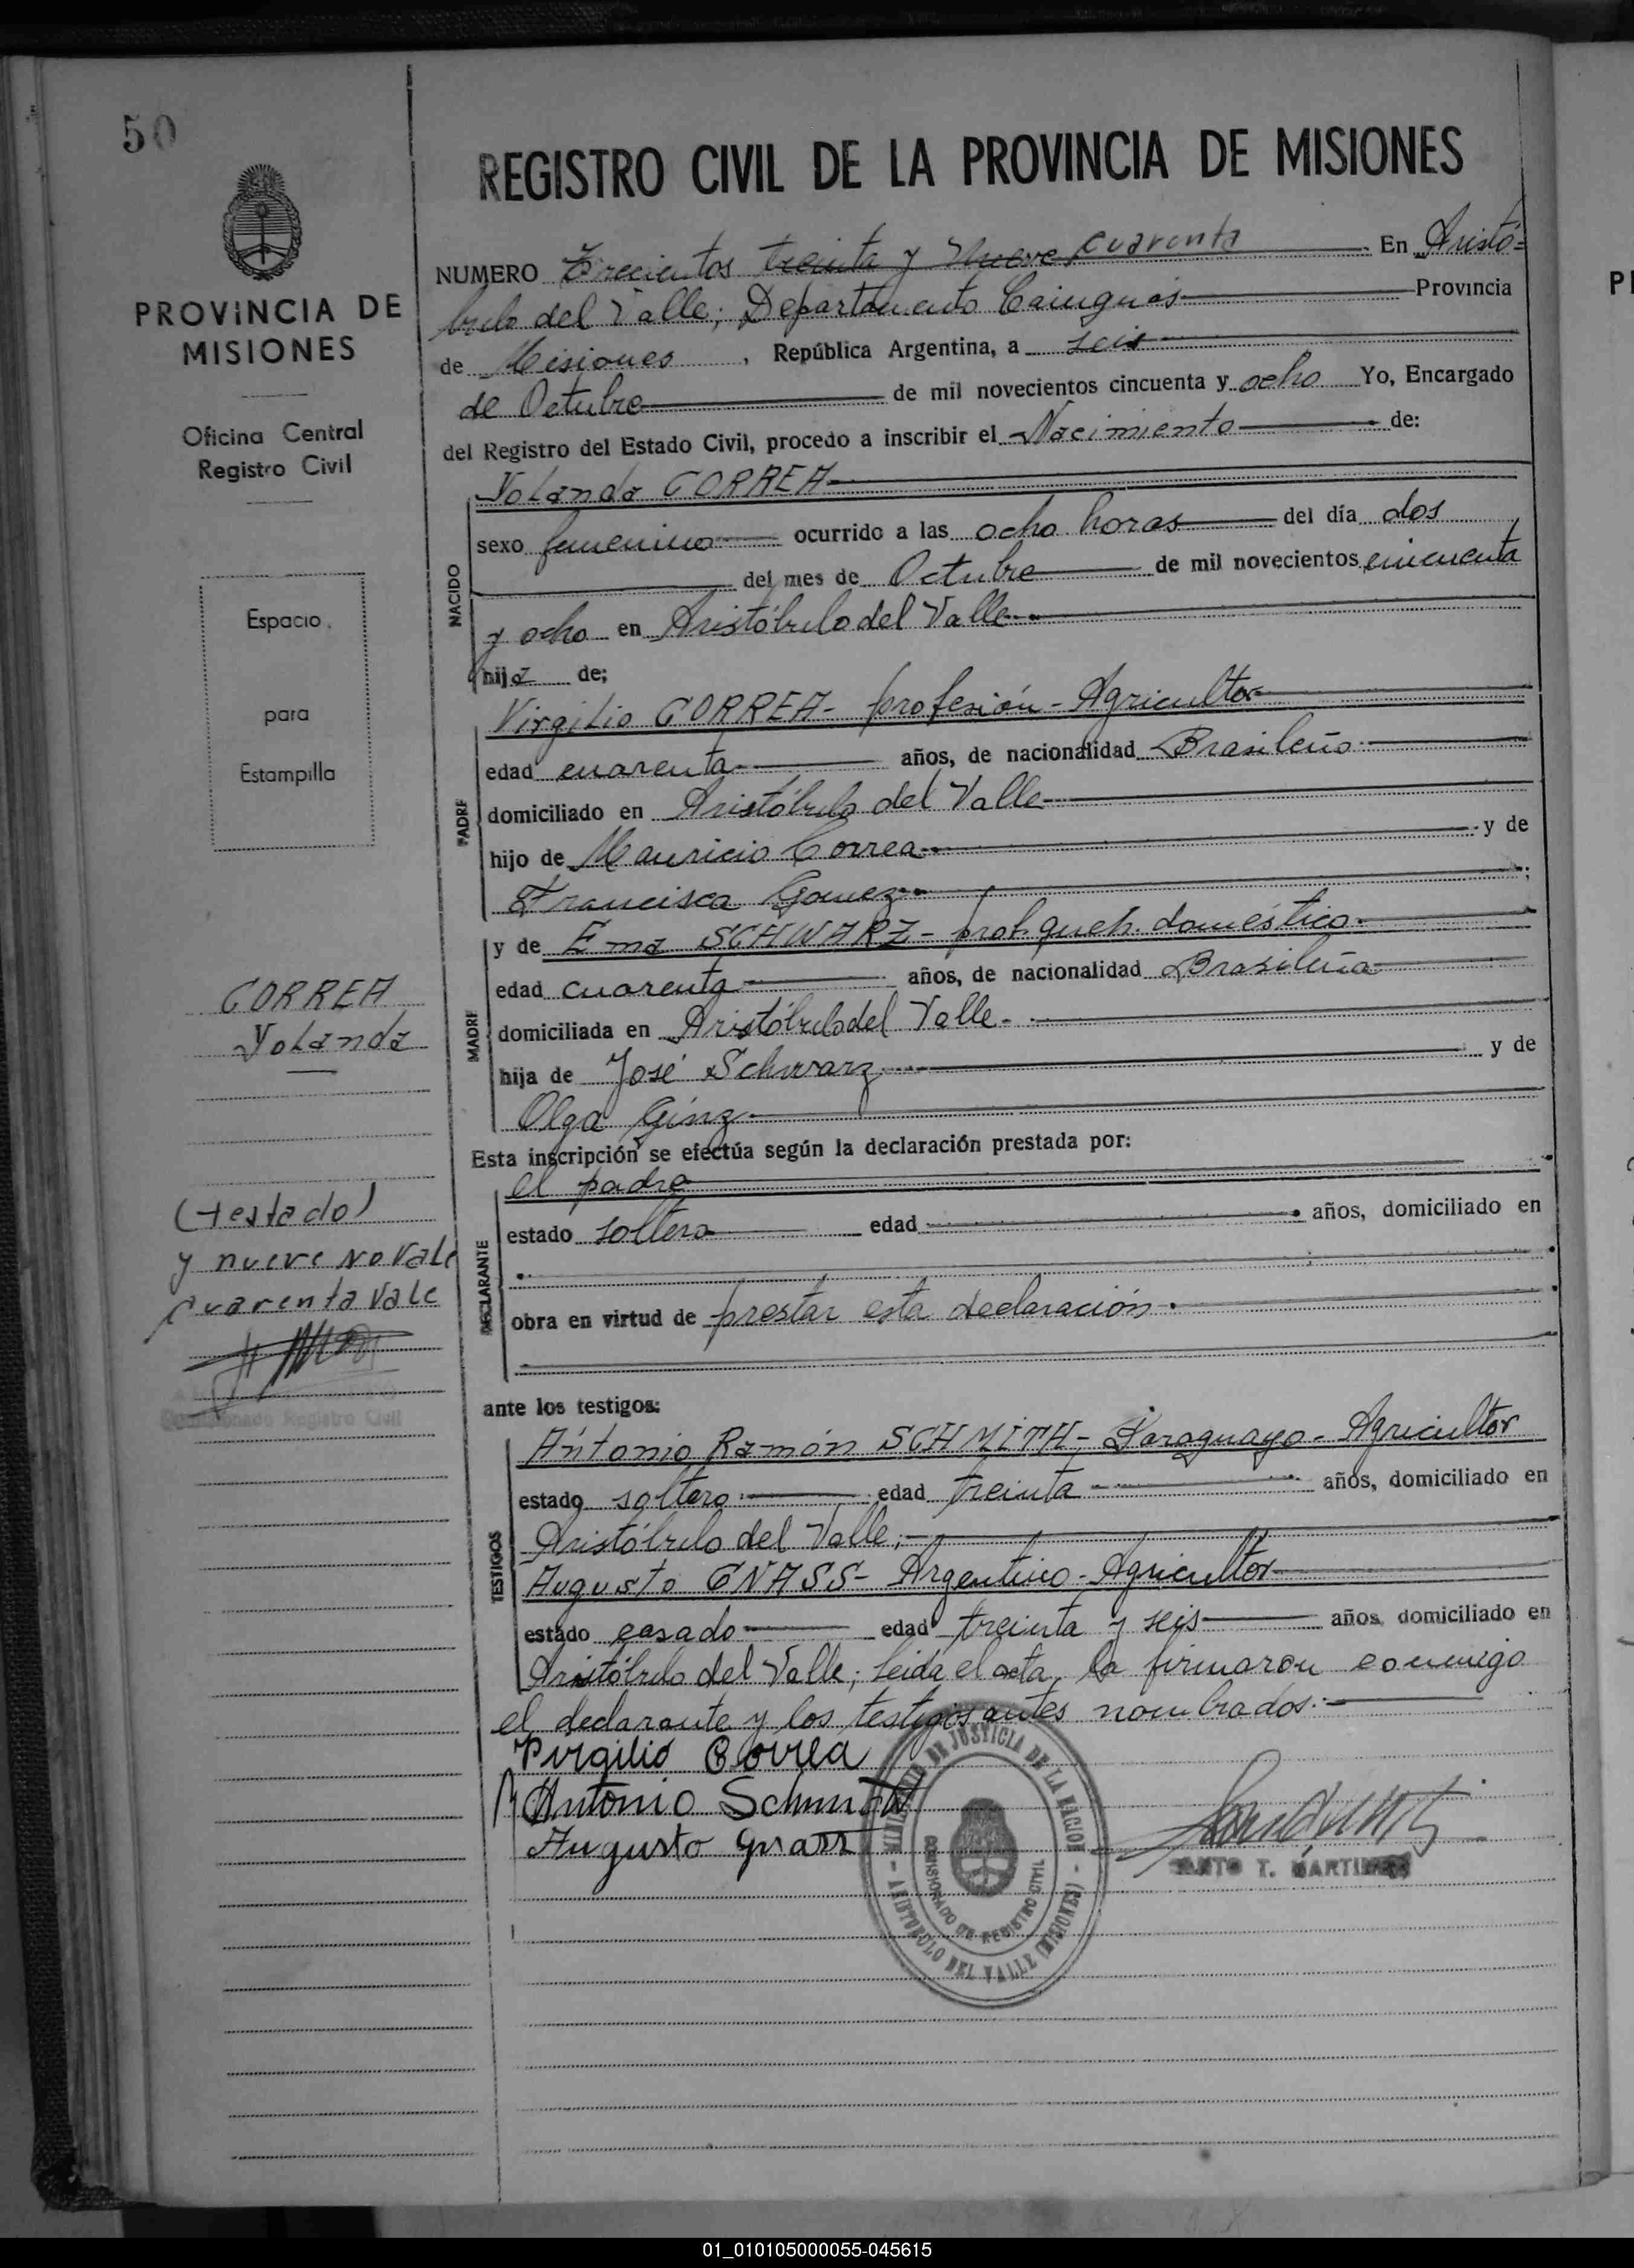 50
PROVINCIA DE
MISIONES
Oficina Central
Registro Civil
Espacio
para
Estampilla
CORREA
Yolanda
(testado)
y nueve no vale
cuarenta vale
Registro Civil
REGISTRO CIVIL DE LA PROVINCIA DE MISIONES
NUMERO Trecientos treinta y Nueve cuarenta En Aristó=
bulo del Valle; Departamento Cainguas Provincia
de Misiones, República Argentina, a seis
de Octubre de mil novecientos cincuenta y ocho Yo, Encargado
del Registro del Estado Civil, procedo a inscribir el Nacimiento de:
NACIDO
Yolanda CORREA
sexo femenino ocurrido a las ocho horas del día dos
del mes de Octubre de mil novecientos cincuenta
y ocho en Aristóbulo del Valle
hija de;
PADRE
Virgilio CORREA- profesión - Agricultor
edad cuarenta años, de nacionalidad Brasileño
domiciliado en Aristóbulo del Valle
hijo de Mauricio Correa y de
Francisca Gomez ;
MADRE
y de Ema SCHWARZ - prof. queh. doméstico
edad cuarenta años, de nacionalidad Brasileña
domiciliada en Aristóbulo del Valle
hija de José Schwarz y de
Olga Ginz
Esta inscripción se efectúa según la declaración prestada por:
DECLARANTE
el padre
estado soltero edad años, domiciliado en
obra en virtud de prestar esta declaración
ante los testigos:
TESTIGOS
Antonio Ramón SCHMITH - Paraguayo - Agricultor
estado soltero edad treinta años, domiciliado en
Aristóbulo del Valle;
Augusto GNASS - Argentino - Agricultor
estado casado edad treinta y seis años, domiciliado en
Aristóbulo del Valle; leida el acta, la firmaron conmigo
el declarante y los testigos antes nombrados
Virgilio Correa
Antonio Schmith
Augusto Gnass
MINISTERIO DE JUSTICIA DE LA NACION
COMISIONADO DE REGISTRO CIVIL
- ARISTOBULO DEL VALLE (MISIONES) -
T. MARTINEZ
01_010105000055-045615